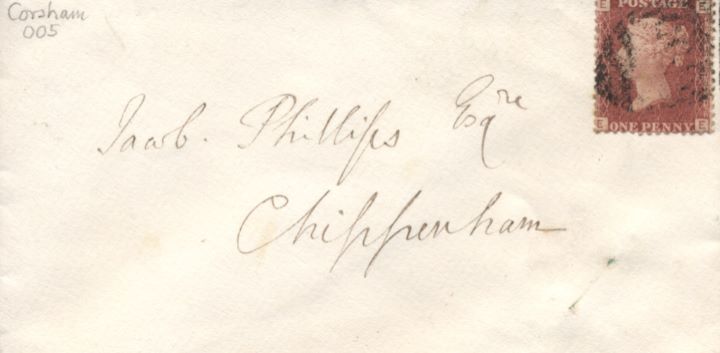 Corsham
005
POSTAGE
E E
E ONE PENNY E
Jacob. Phillips Esqre
Chippenham